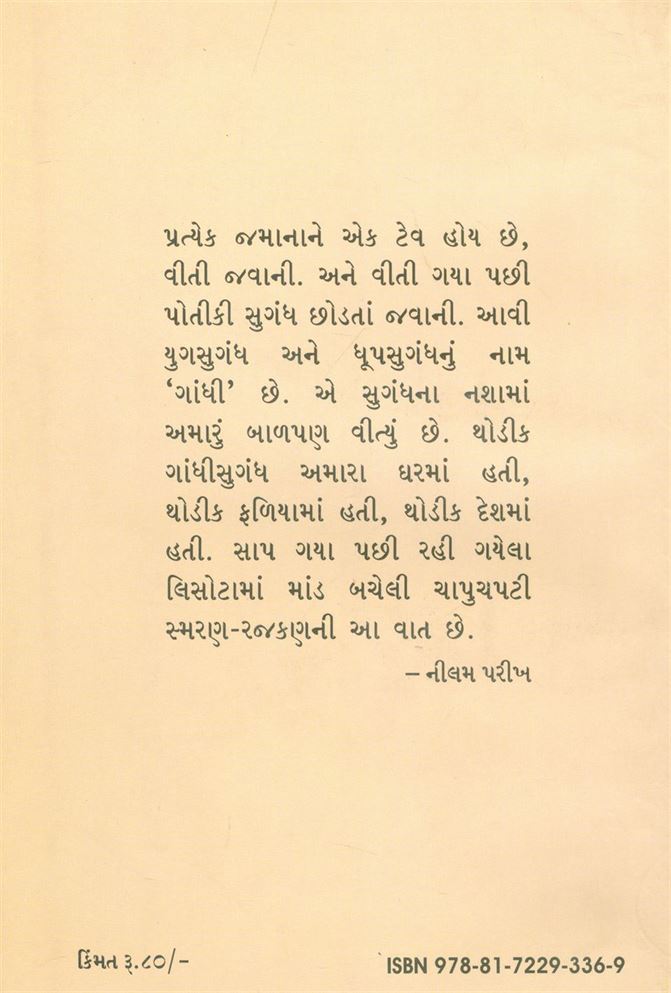 પ્રત્યેક જમાનાને એક ટેવ હોય છે,
વીતી જવાની. અને વીતી ગયા પછી
પોતીકી સુગંધ છોડતાં જવાની. આવી
યુગસુગંધ અને ધૂપસુગંધનું નામ
‘ગાંધી’ છે. એ સુગંધના નશામાં
અમારું બાળપણ વીત્યું છે. થોડીક
ગાંધીસુગંધ અમારા ઘરમાં હતી,
થોડીક ફળિયામાં હતી, થોડીક દેશમાં
હતી. સાપ ગયા પછી રહી ગયેલા
લિસોટામાં માંડ બચેલી ચાપુચપટી
સ્મરણ-રજકણની આ વાત છે.
– નીલમ પરીખ
કિંમત રૂ.૮૦/–
ISBN 978-81-7229-336-9